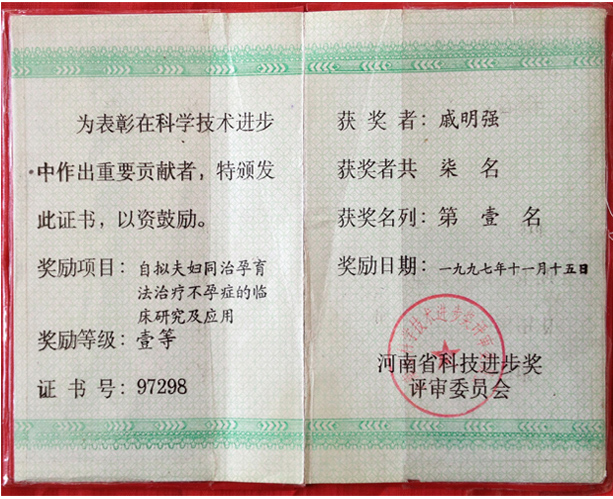 为表彰在科学技术进步
中作出重要贡献者，特颁发
此证书，以资鼓励。
奖励项目：自拟夫妇同治孕育
法治疗不孕症的临
床研究及应用
奖励等级：壹等
证 书 号：97298
获 奖 者：戚明强
获奖者共 柒 名
获奖名列：第 壹 名
奖励日期：一九九七年十一月十五日
河南省科技进步奖
评审委员会